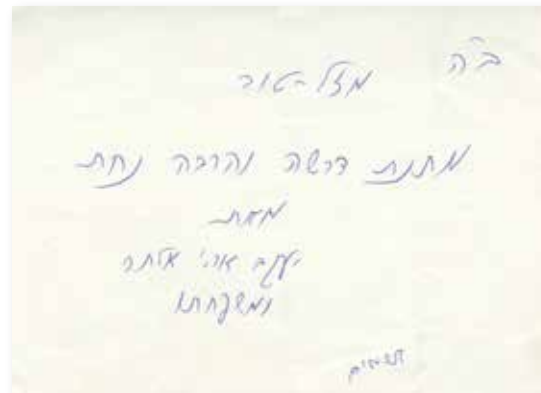 ב"ה
מזל-טוב
מתנת דרשה והרבה נחת
מאת
יעקב
ומשפחתו